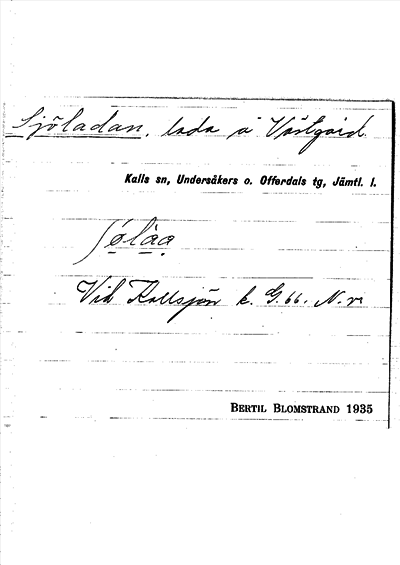 Sjöladan, lada å Västgård.
Kalls sn, Undersåkers o. Offerdals tg, Jämtl. l.
Vid Kallsjön k. G.66. N.v.
BERTIL BLOMSTRAND 1935